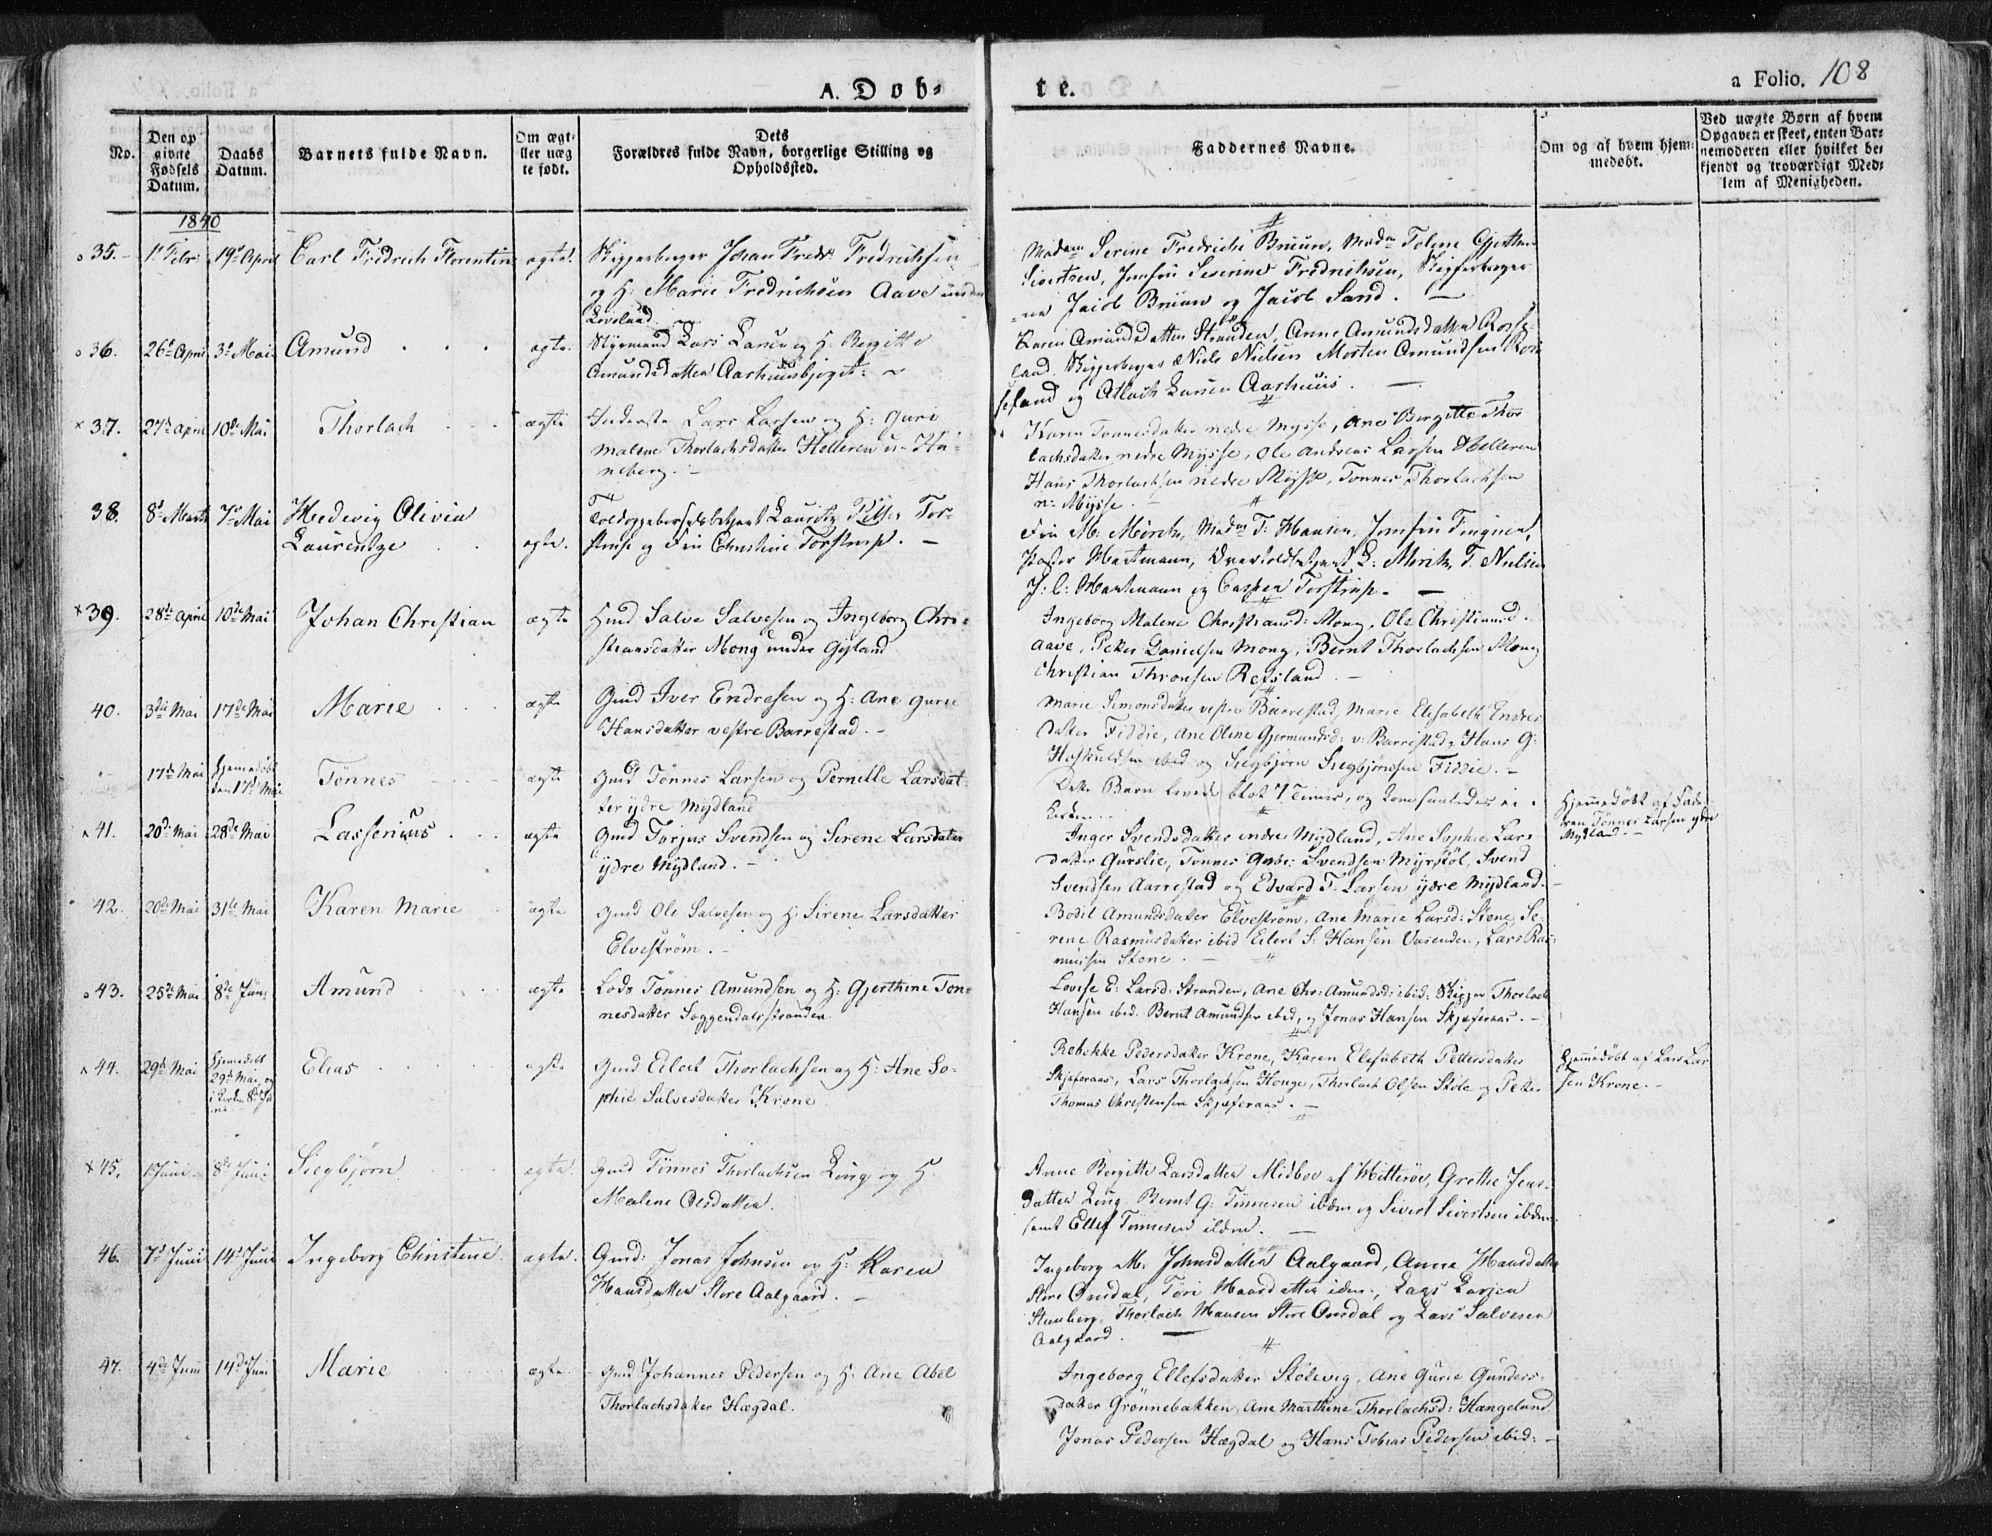 A. Døb-
te.
a Folio. 108
No.
Den op
givne
Fødsels
Datum.
Daabs
Datum.
Barnets fulde Navn.
Om ægt-
ller uæg
te født.
Dets
Forældres fulde Navn, borgerlige Stilling og
Opholdssted.
Faddernes Navne.
Om og af hvem hjem-
medøbt.
Ved uægte Børn af hvem
Opgaven er skeet, enten Bar-
nemoderen eller hvilket be-
kjendt og troværdigt Med-
lem af Menigheden.
1840
35. 1ste Febr 19de April Carl Fredrich Florentin ægte. Skipperborger Johan Fredr. Fredrichsen
og H: Marie Fredrichsen Aave under
Madam Serine Fredriche Bruun, Madm Tolene Gjerthe
Sivertsen, Jomfru Severine Fredrichsen, Skipperborger
-ne Jacob Bruun og Jacob Sand. —
36. 26de April 3de Mai Amund ægte. Styrmand Lars Larsen og H: Bergitte
Amundsdatter Aarhuusbjoget: ~
Karen Amundsdatter Stranden, Anne Amundsdatter Rosse-
land, Skipperborger Niels Nielsen Morten Amundsen Ros-
seland og Atlach Larsen Aarhuus. —
37. 27de April 10de Mai Thorlach ægte Inderste Lars Larsen og H: Guri
Malene Thorlachsdatter Helleren u. Ha-
neberg. -
Karen Tonnesdatter nedre Mysse, Ane Bergitte Thor
lachsdatter nedre Mysse, Ole Andreas Larsen Helleren
Hans Thorlachsen nedre Mysse, Tonnes Thorlachsen
n: Mysse.
38. 8de Marts 7de Mai Hedevig Olivia
Laurentze ægte. Toldopebørselsbetjent Lauritz Petter Tor-
strup og Fru Christine Torstrup. —
Fru M. Mørch, Madm T: Hansen, Jomfru Tengner,
Pastor Hartmann, Overtoldbetjent L: Mørch, T. Nielsen
J: C: Hartmann og Casper Torstrup. —
39. 28de April 10de Mai Johan Christian ægte Hmd Salve Salvesen og Ingeborg Chri-
stiansdatter Mong under Gyland
Ingeborg Malene Christiansd: Mong, Ole Christiansd.
Aave, Peter Danielsen Mong, Bernt Thorlachsen Mong
Christian Thronsen Refsland. -
40. 3die Mai 17de Mai Marie ægte Gmd Iver Endresen og H: Ane Gurie
Hansdatter vestre Barrestad. -
Marie Simonsdatter vestre Barrestad, Marie Elisabeth Endres
datter Fiddie, Ane Oline Gjermundsd: v: Barrestad, Hans G:
Hoskuldsen ibid og Siegbjørn Siegbjørnsen Fiddie. -
17de Mai Hjemmedøbt
den 17de Mai Tønnes ægte Gmd Tønnes Larsen og Pernille Larsdat-
ter ydre Mydland
Dette Barn levede blot 7 Timer, og kom saaledes ei i
Kirken.
Hjemmedøbt af Fade-
ren Tønnes Larsen ydre
Mydland. -
41. 20de Mai 28de Mai Lasserius ægte Gmd Torjus Svendsen og Serene Larsdatter
ydre Mydland. -
Inger Svendsdatter indre Mydland, Ane Sophie Lars-
datter Gurslie, Tønnes Gabr: Svendsen Myrstøl, Svend
Svendsen Aarrestad og Edvard T. Larsen ydre Mydland. -
42. 20de Mai 31te Mai Karen Marie ægte Gmd Ole Salvesen og H: Sirene Larsdatter
Elvestrøm. -
Bodil Amundsdatter Elvestrøm, Ane Marie Larsd: Stene Se-
rene Rasmusdatter ibid Eilert S: Hansen Vasenden, Lars Ras-
mussen Stene. -
43. 25de Mai 8de Juni Amund ægte Lods Tönnes Amundsen og H: Gjerthine Tön-
nesdatter Soggendalsstranden
Lovise E: Larsd: Stranden, Ane Chr: Amundsd: ibid: Skipper Thorlach
Hansen ibid. Bernt Amundsen ibid, og Jonas Hansen Skjæferaas. -
44. 29de Mai Hjemmedøbt
29de Mai, og
i Kirken 8de Ju-
ni Elias ægte Gmd Eilert Thorlachsen og H: Ane So-
phie Salvesdatter Krone
Rebekke Pedersdatter Krone, Karen Elesabeth Pettersdatter
Skjæferaas, Lars Thorlachsen Houge, Thorlach Olsen Støle og Petter
Thomas Christensen Skjæferaas. -
Hjemmedøbt af Lars Lar-
sen Krone. -
45. 1 Juni 8de Juni Siegbjørn ægte. Gmd Tönnes Thorlachsen Ling og H.
Malene Olsdatter.
Anne Bergitte Larsdatter Midboe af Hitterøe, Grethe Jens-
datter Ling. Bernt G: Tönnesen ibdm og Sivert Sivertsen ibdm.
samt Ellef Tönnesen ibdm. —
46. 7de Juni 14de Juni Ingeborg Christine ægte. Gmd: Jonas Johnsen og H: Karen
Hansdatter Store Aalgaard. -
Ingeborg M: Johnsdatter Aalgaard, Anna Hansdatter
Store Omdal, Tori Hansdatter idem., Lars Larsen
Steenberg, Thorlach Hansen Store Omdal og Lars Salvesen
Aalgaard. —
47. 4de Juni 14de Juni Marie ægte. Gmd Johannes Pedersen og H: Ane Abel
Thorlachsdatter Hægdal.
Ingeborg Ellefsdatter Stølevig, Ane Gurie Gunders-
datter Grønnebakken, Ane Marthine Thorlachsd: Hangeland
Jonas Pedersen Hægdal og Hans Tobias Pedersen ibid: -